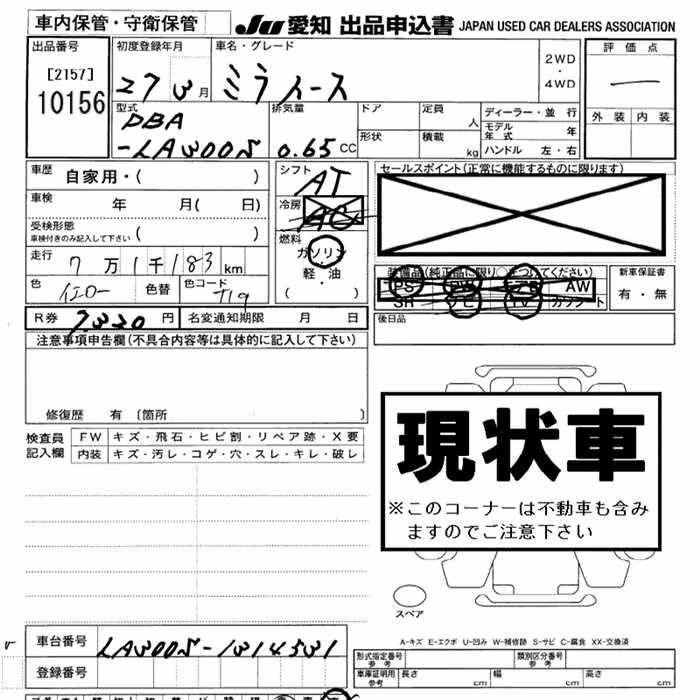 車内保管・守衛保管
JU 愛知 出品申込書 JAPAN USED CAR DEALERS ASSOCIATION
出品番号
[2157]
10156
初度登録年月
27 3月
車名・グレード
ミライース
2WD
・
4WD
評価点
外装 内装
型式
DBA
-LA300S
排気量
0.65 CC
ドア
定員
人
形状
積載
kg
ディーラー・並行
モデル年式 年
ハンドル 左・右
車歴 自家用・( )
車検 年 月( 日)
受検形態
車検付きのみ記入して下さい ( )
走行 7万1千183km
色
イエロー
色替
色コード
T19
シフト
AT
冷房
AC
燃料
ガソリン
・
軽・油
( )
セールスポイント(正常に機能するものに限ります)
装備品(純正品に限り○をつけてください)
PS PW エアB AW
SR ナビ TV カワシート
新車保証書
有・無
後日品
R券 7,330円
名変通知期限 月 日
注意事項申告欄(不具合内容等は具体的に記入して下さい)
修復歴 有 [箇所 ]
検査員
記入欄
FW キズ・飛石・ヒビ割・リペア跡・X要
内装 キズ・汚レ・コゲ・穴・スレ・キレ・破レ
現状車
※このコーナーは不動車も含み
ますのでご注意下さい
スペア
A-キズ E-エクボ U-凹み W-補修跡 S-サビ C-腐食 XX-交換済
車台番号 LA300S-1314531
登録番号
形式指定番号
参考
類別区分番号
参考
車庫証明用
参考
長さ cm
幅 cm
高さ cm